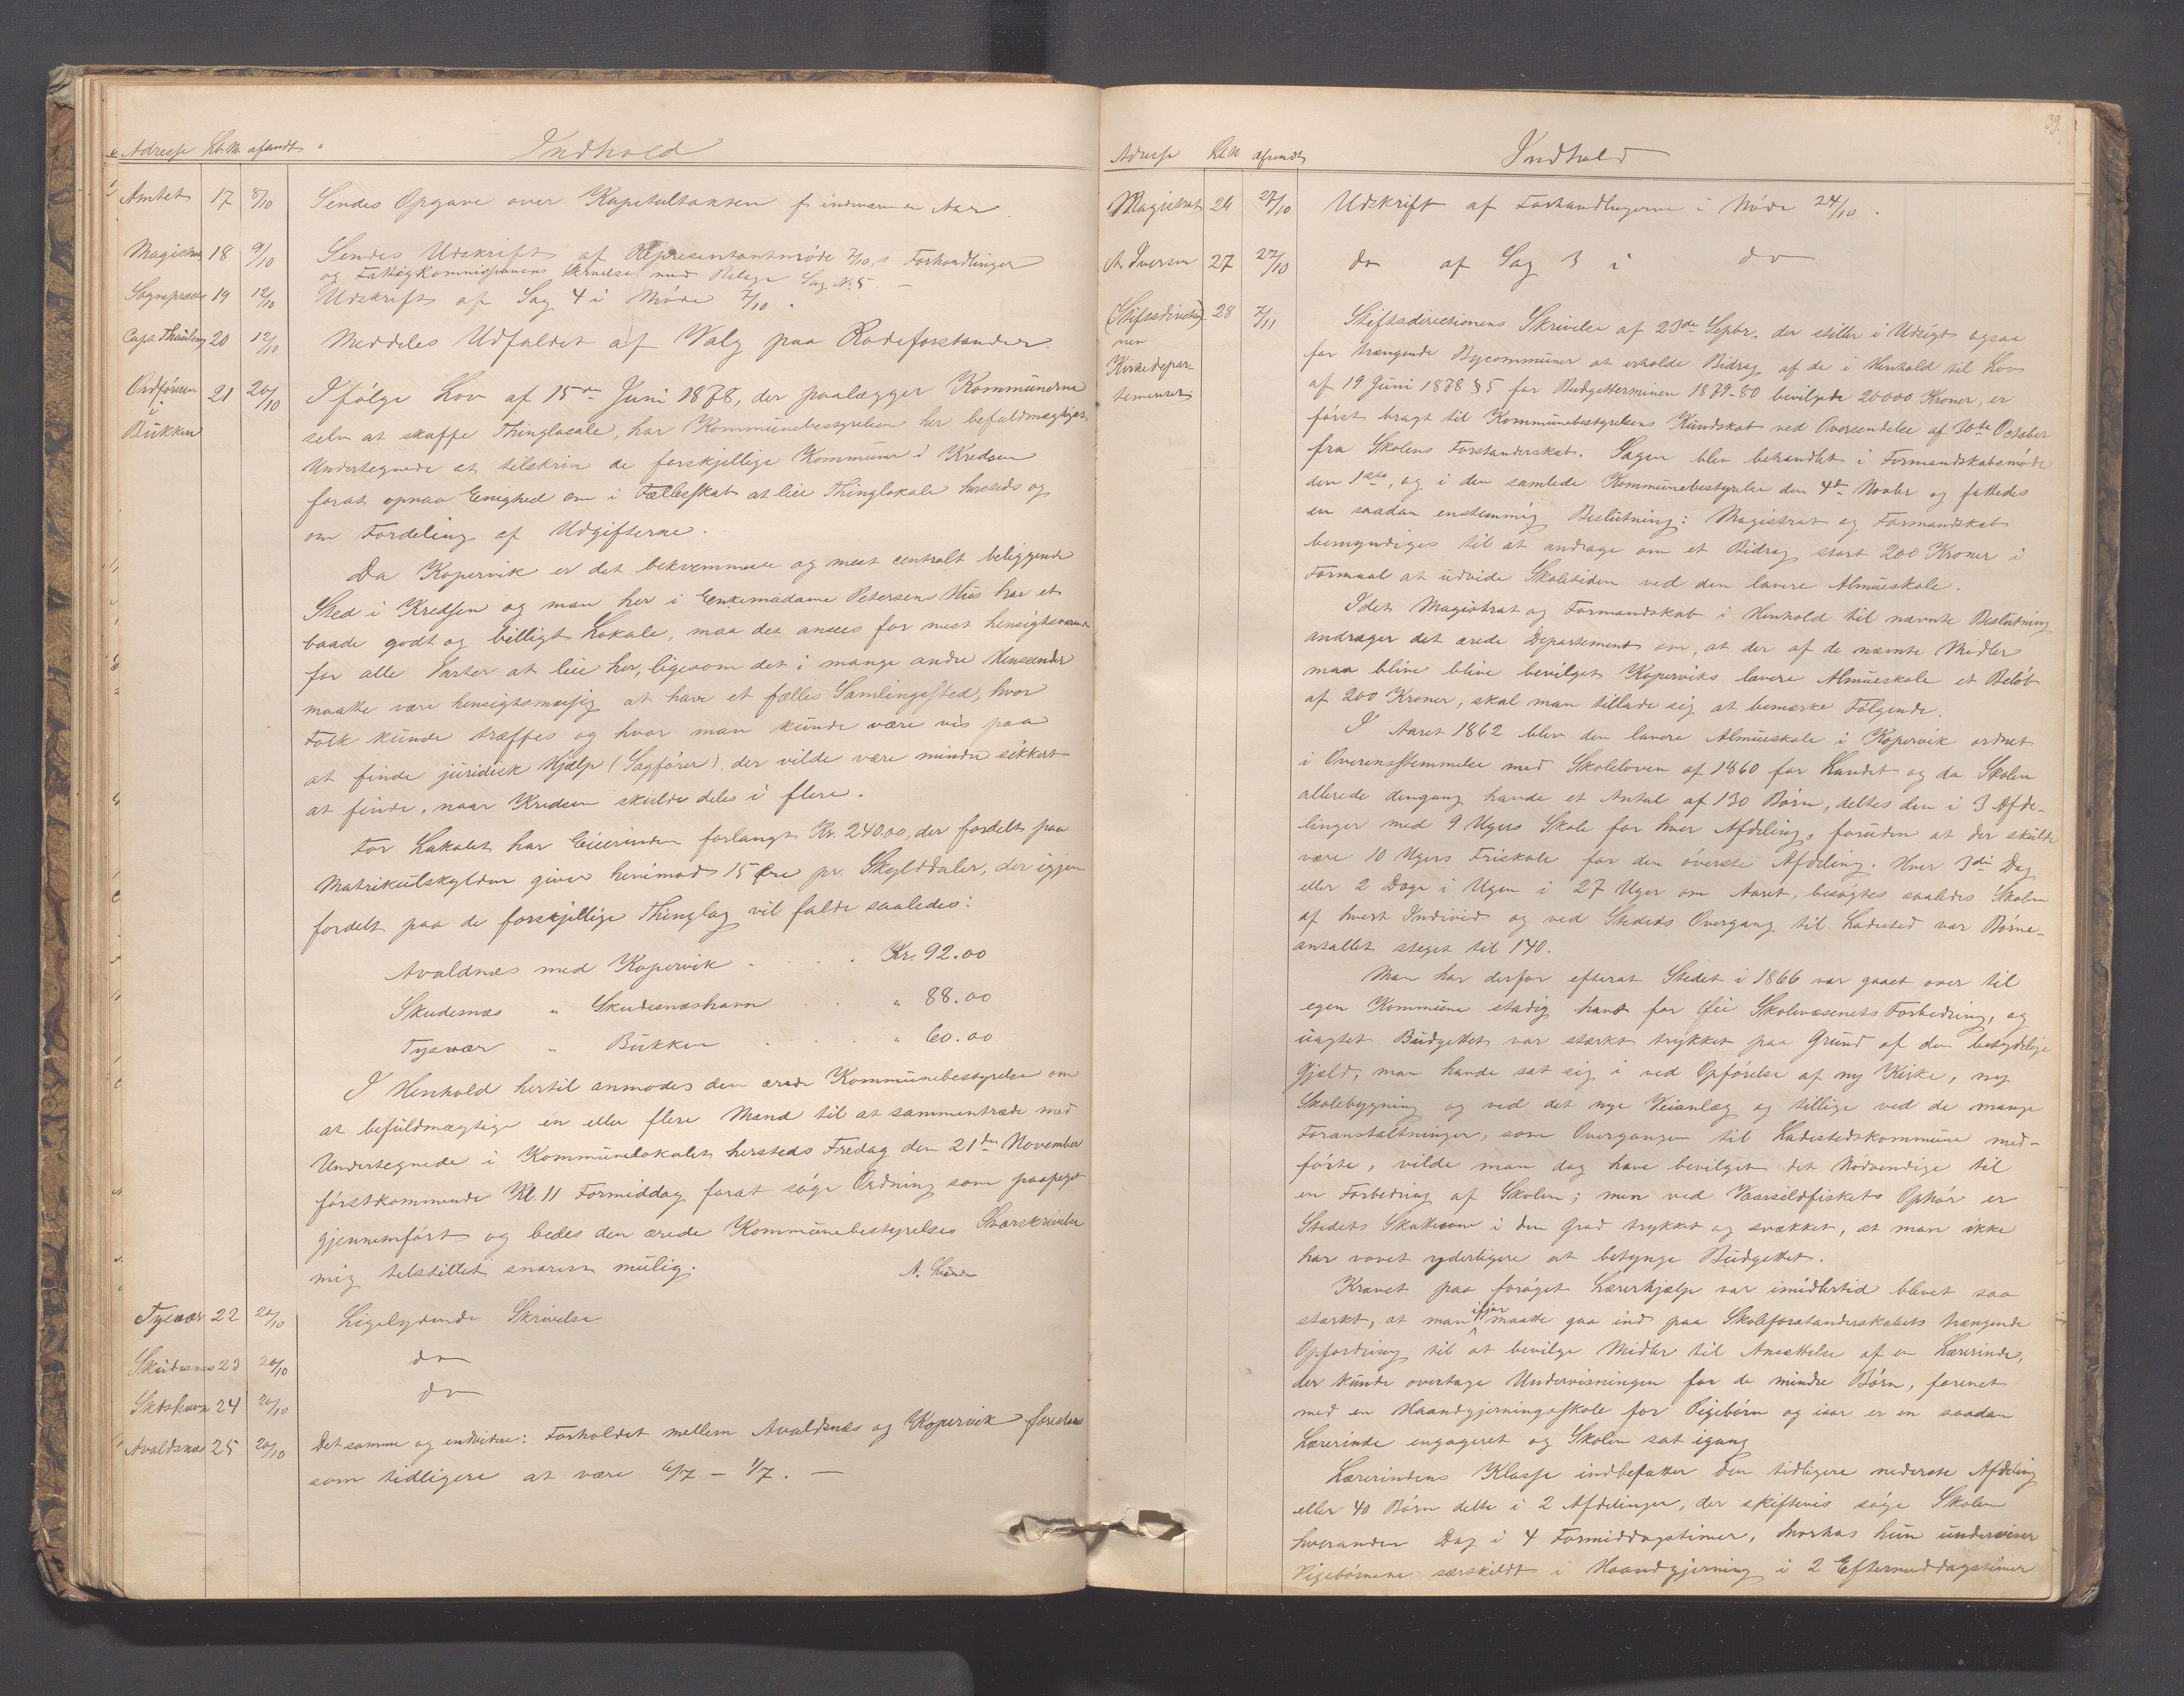 Adresse Lb. Nr. afsendt Indhold
Amtet 17 8/10 Sendes Opgave over Kapitaltaxten f. indeværende Aar.
Magistrat 18 9/10 Sendes Udskrift af Repræsentantmøde 7/10,s Forhandlinger
og Fattigkommissionens Skrivelse med Bilage Sag N. 5. –
Sognepræst 19 12/10 Udskrift af Sag 4 i Møde 7/10.
Capt. Thaulow 20 12/10 Meddeles Udfaldet af Valg paa Rodeforstander.
Ordføreren 21 20/10 Ifølge Lov af 15de Juni 1878, der paalægger Kommunerne
i
Bukken selv at skaffe Thinglocale, har Kommunebestyrelsen her befuldmægtiget
Undertegnede at tilskrive de forskjellige Kommuner i Kredsen
forat opnaa Enighed om i Fællesskab at leie Thinglokale hersteds og
om Fordeling af Udgifterne.
Da Kopervik er det bekvemmeste og mest centralt beliggende
Sted i Kredsen og man her i Enkemadame Petersens Hus har et
baade godt og billigt Lokale, maa det ansees for mest hensigtsvarende
for alle Parter at leie her, ligesom det i mange andre Henseender
maatte være hensigtsmæssig at have et fælles Samlingssted, hvor
Folk kunde træffes og hvor man kunde være vis paa
at finde juridisk Hjælp (Sagfører), der vilde være mindre sikkert
at finde, naar Kredsen skulde deles i flere.
For Lokalet har Eierinden forlangt Kr. 240.00, der fordelt paa
Matrikulskylden giver henimod 15 Øre pr. Skylddaler, der igjen
fordelt paa de forskjellige Thinglag vil falde saaledes:
Avaldnæs med Kopervik . . . . Kr. 92.00
Skudesnæs " Skudesnæshavn . . " 88.00
Tysvær " Bukken . . . " 60.00
I Henhold hertil anmodes den ærede Kommunebestyrelse om
at befuldmægtige én eller flere Mænd til at sammentræde med
Undertegnede i Kommunelokalet hersteds Fredag den 21de November
førstkommende Kl. 11 Formiddag forat søge Ordning som paapeget
gjennemført og bedes den ærede Kommunebestyrelses Svarskrivelse
mig tilstillet snarest mulig.
A. Lunde
Tysvær 22 20/10 Ligelydende Skrivelse
Skudesnæs 23 20/10 do
Sk.ds.havn 24 20/10 do
Avaldsnæs 25 20/10 Det samme og endvidere: Forholdet mellem Avaldsnæs og Kopervik
som tidligere at være 6/7 – 1/7. –
39.
Adresse Lb. N afsendt Indhold
Magistrat 26 27/10 Udskrift af Forhandlingerne i Møde 24/10.
A. Iversen 27 27/10 do af Sag 3 i do
Stiftsdirectio- 28 7/11 Stiftsdirectionens Skrivelse af 23de Septbr, der stiller i Udsigt ogsaa
nen
for trængende Bycommuner at erholde Bidrag af de i Henhold til Lov
Kirkedepar-
af 19 Juni 1878 § 5 for Budgetterminen 1879-80 bevilgede 20000 Kroner, er
tementet
først bragt til Kommunebestyrelsens Kundskab ved Oversendelse af 30te October
fra Skolens Forstanderskab. Sagen blev behandlet i Formandskabsmøde
den 1ste, og i den samlede Kommunebestyrelse den 4de Novbr og fattedes
en saadan enstemmig Beslutning: Magistrat og Formandskab
bemyndiges til at andrage om et Bidrag stort 200 Kroner i
Formaal at udvide Skoletiden ved den lavere Almueskole.
Idet Magistrat og Formandskab i Henhold til nævnte Beslutning
andrager det ærede Departement om, at der af de nævnte Midler
maa blive blive bevilget Koperviks lavere Almueskole et Beløb
af 200 Kroner, skal man tillade sig at bemærke Følgende.
I Aaret 1862 blev den lavere Almueskole i Kopervik ordnet
i Overensstemmelse med Skoleloven af 1860 for Landet og da Skolen
allerede dengang havde et Antal af 130 Børn, deltes den i 3 Afde-
linger med 9 Ugers Skole for hver Afdeling, foruden at der skulde
være 10 Ugers Friskole for den øverste Afdeling. Hver 3die Dag
eller 2 Dage i Ugen i 27 Uger om Aaret, besøgtes saaledes Skolen
af hvert Individ og ved Stedets Overgang til Ladested var Børne-
antallet steget til 140.
Man har derfor efterat Stedet i 1866 var gaaet over til
egen Kommune stadig havt for Øie Skolevæsenets Forbedring, og
uagtet Budgettet var stærkt trykket paa Grund af den betydelige
Gjæld, man havde sat sig i ved Opførelse af ny Kirke, ny
Skolebygning og ved det nye Veianlæg og tillige ved de mange
Foranstaltninger, som Overgangen til Ladestedskommune med-
førte, vilde man dog have bevilget det Nødvendige til
en Forbedring af Skolen; men ved Vaarsildfiskets Ophør er
Stedets Skatteevne i den Grad trykket og svækket, at man ikke
har vovet yderligere at betynge Budgettet.
Kravet paa forøget Lærerhjælp var imidlertid blevet saa
stærkt, at man ifjor maatte gaa ind paa Skoleforstanderskabets trængende
Opfordring til at bevilge Midler til Ansættelse af en Lærerinde,
der kunde overtage Undervisningen for de mindre Børn, forenet
med en Haandgjerningsskole for Pigebørn og iaar er en saadan
Lærerinde engageret og Skolen sat igang
Lærerindens Klasse indbefatter den tidligere nederste Afdeling
eller 40 Børn delte i 2 Afdelinger, der skiftevis søge Skolen
hverandre Dag i 4 Formiddagstimer, hvorhos hun underviser
Pigebørnene særskildt i Haandgjerning i 2 Eftermiddagstimer